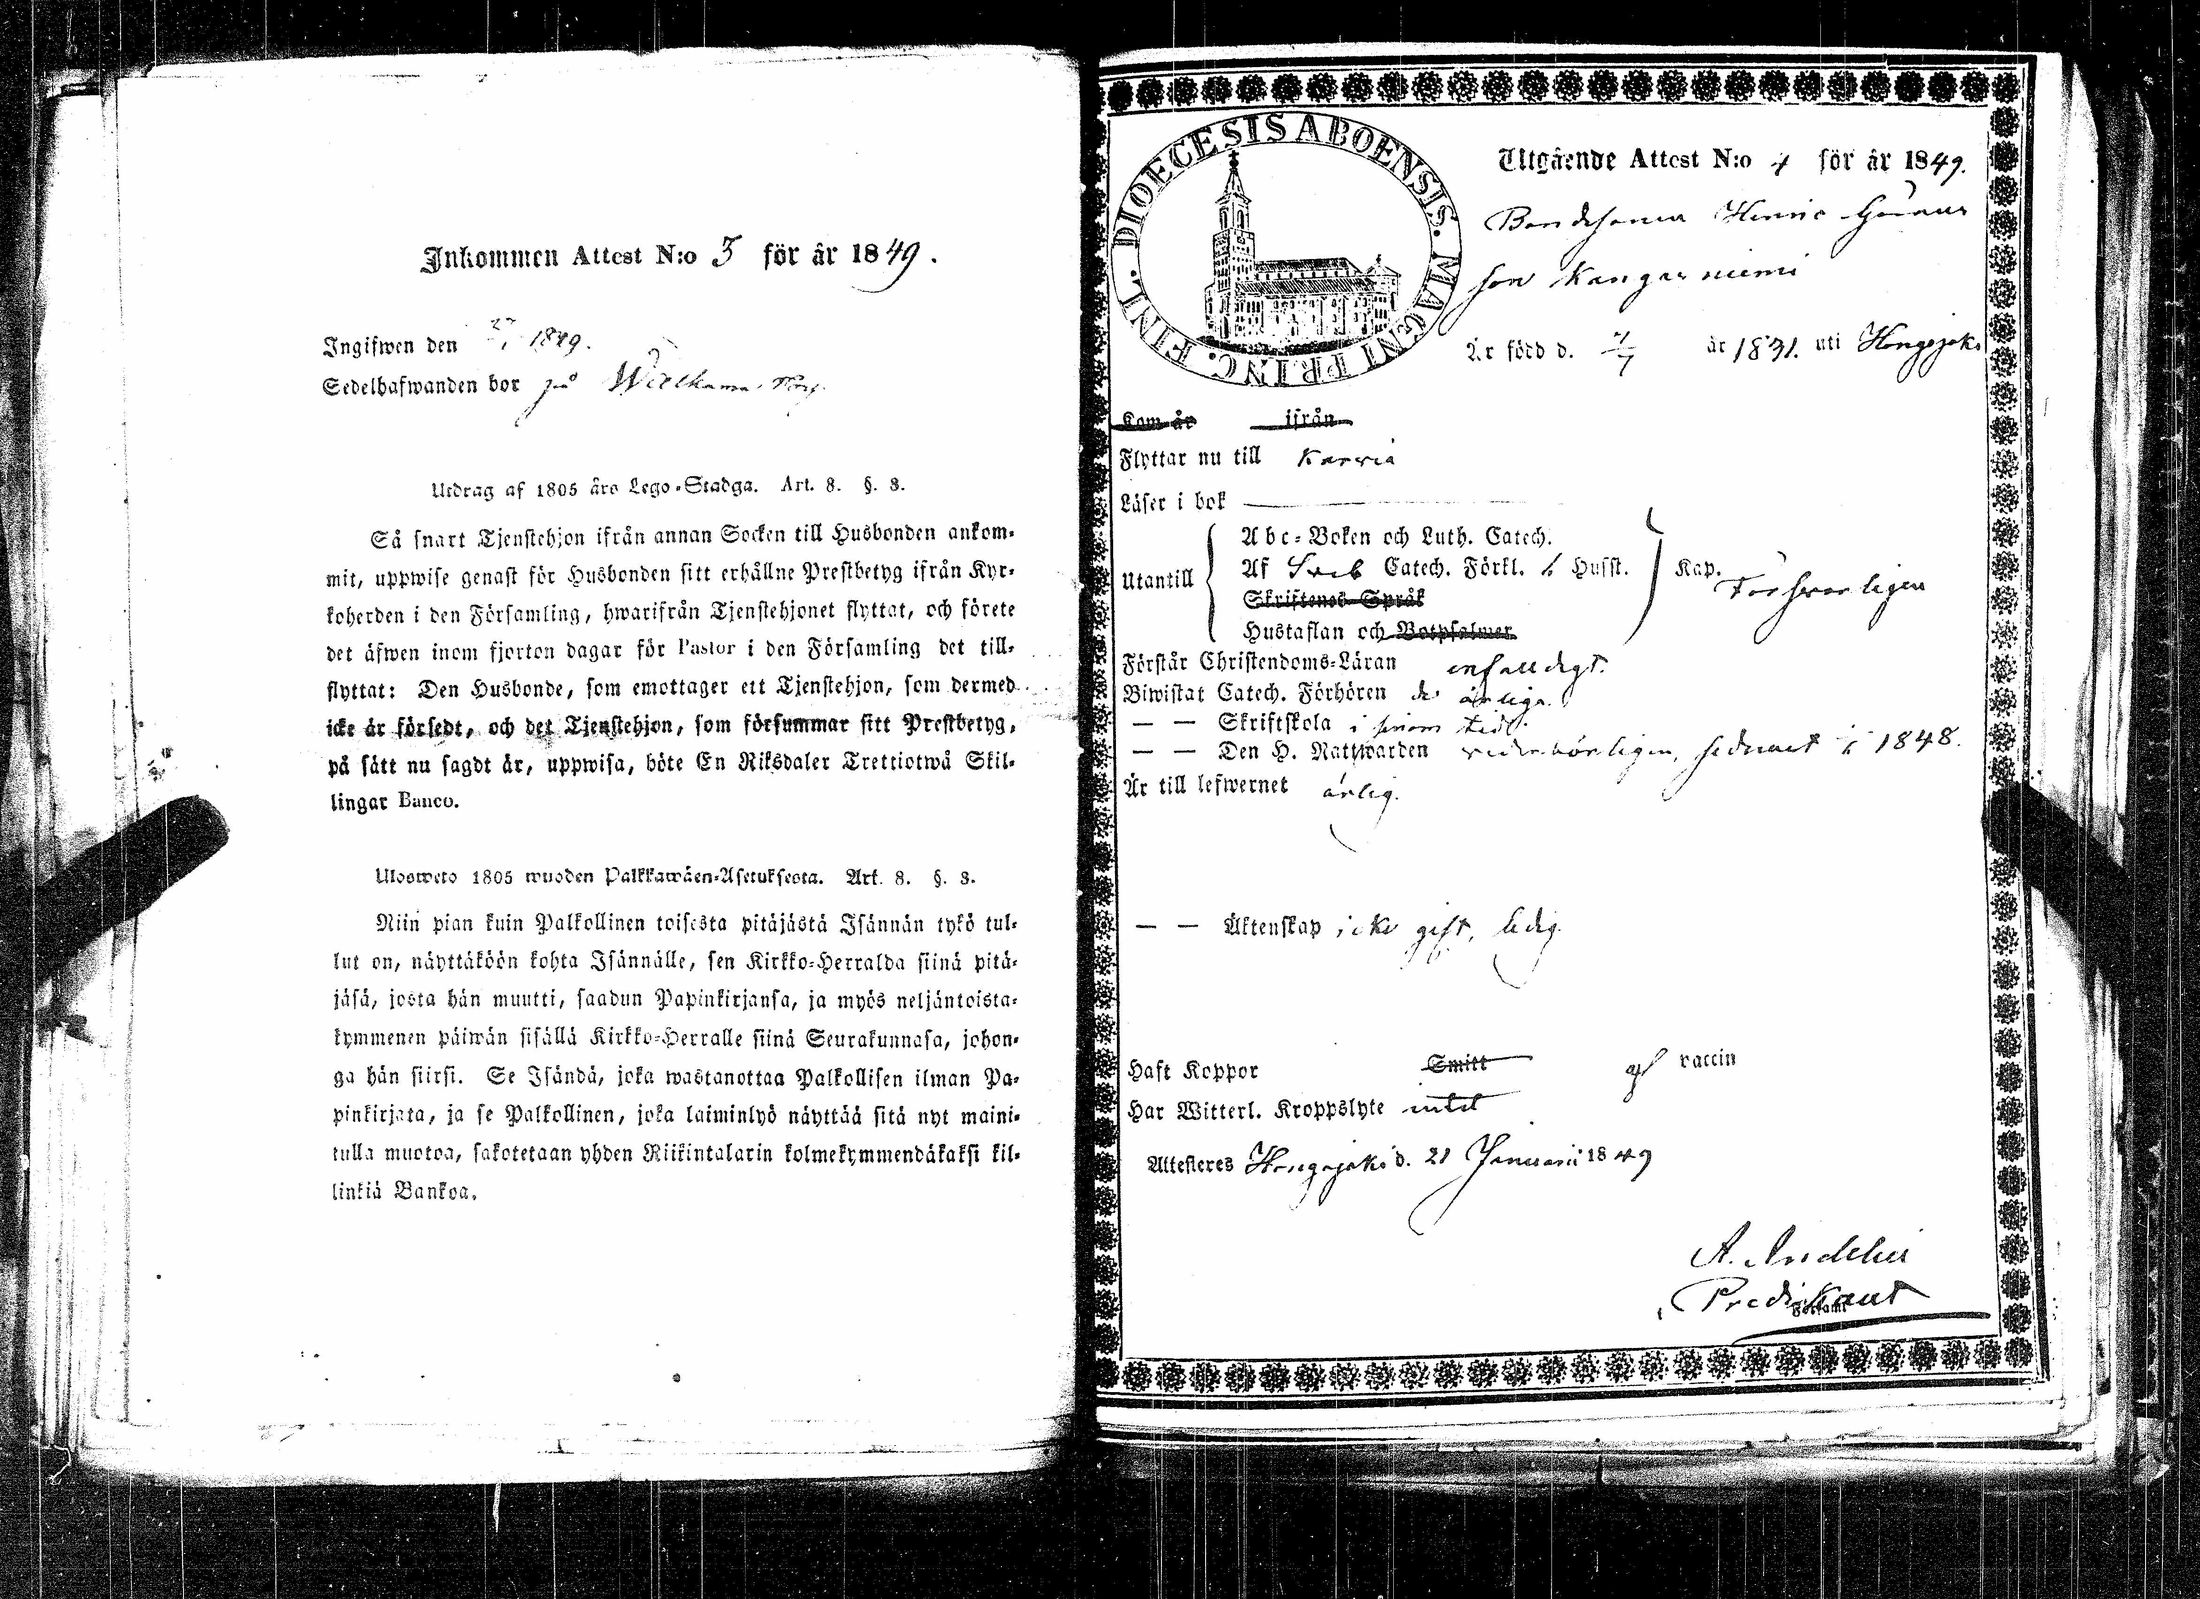 Inkommen Attest N:o 3 för år 1849.
Ingifwen den 27/1 1849.
Sedelhafwanden bor på
Utdrag af 1805 års Lego-Stadga. Art. 8. §. 3.
Så snart Tjenstehjon ifrån annan Socken till Husbonden ankom-
mit, uppwise genast för Husbonden sitt erhållne Prestbetyg ifrån Kyr-
koherden i den Församling, hwarifrån Tjenstehjonet flyttat, och förete
det äfwen inom fjorton dagar för Pastor i den Församling det till-
flyttat: Den Husbonde, som emottager ett Tjenstehjon, som dermed
icke är försedt, och det Tjenstehjon, som försummar sitt Prestbetyg,
på sätt nu sagdt är, uppwisa, böte En Riksdaler Trettiotwå Skil-
lingar Banco.
Ulosweto 1805 wuoden Palkkawäen-Asetuksesta. Art. 8. §. 3.
Niin pian kuin Palkollinen toisesta pitäjästä Isännän tykö tul-
lut on, näyttäköön kohta Isännälle, sen Kirkko-Herralda siinä pitä-
jäsä, josta hän muutti, saadun Papinkirjansa, ja myös neljäntoista-
kymmenen päiwän sisällä Kirkko-Herralle siinä Seurakunnasa, johon-
ga hän siirsi. Se Isändä, joka wastanottaa Palkollisen ilman Pa-
pinkirjata, ja se Palkollinen, joka laiminlyö näyttää sitä nyt maini-
tulla muotoa, sakotetaan yhden Riikintalarin kolmekymmendäkaksi kil-
linkiä Bankoa.
DIOECESIS ABOENSIS. MAGNI PRINC. FINL.
Utgående Attest N:o 4 för år 1849.
Bondesonen Henric
son Kangasniemi
Är född d. 4/7 år 1831. uti Hongojoki
Kom år ifrån
Flyttar nu till Karvia
Läser i bok
Utantill
Abc-Boken och Luth. Catech.
Af Sveb Catech. Förkl. Husst.
Skriftenes Språk
Hustaflan och Botpsalmer
Kap. Försvarligen
Förstår Christendoms-Läran enfalldigt.
Biwistat Catech. Förhören de årliga.
— — Skriftskola i sinom tid.
— — Den H. Nattwarden vederbörligen, sednast i 1848.
Är till lefwernet ärlig.
— — Äktenskap icke gift, ledig.
Haft Koppor Smitt af vaccin
Har Witterl. Kroppslyte intet
Attesteras Hongojoki d. 21 Januarii 1849
A. Indelin
Predikant
Församl.